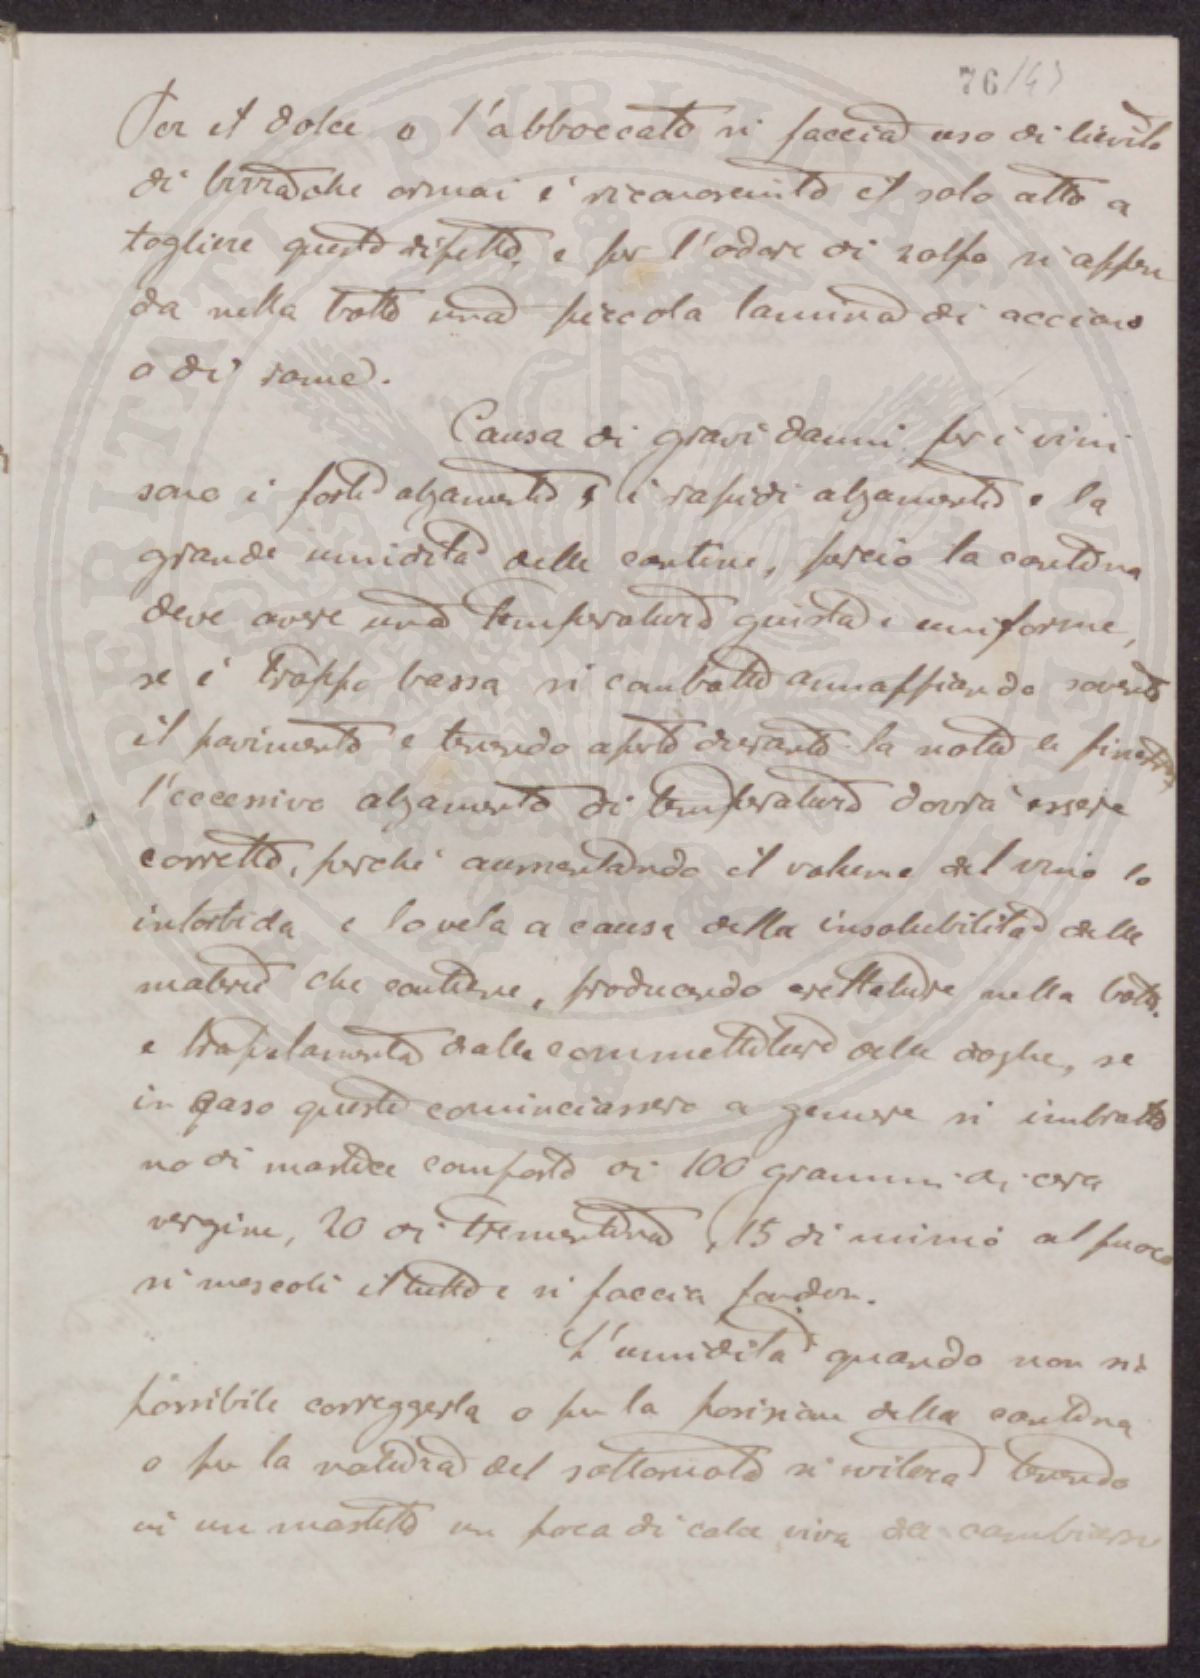 76/47
Per il dolce o l'abboccato si faccia uso di lievito
di birra che ormai è riconosciuto il solo atto a
togliere questo difetto, e per l'odore di zolfo si appen
da nella botte una piccola lamina di acciaio
o di rame.
Causa di gravi danni per i vini
sono i forti alzamenti, i rapidi alzamenti e la
grande umidità delle cantine, perciò la cantina
deve avere una temperatura giusta e uniforme,
se è troppo bassa si combatte annaffiando sovente
il pavimento e tenendo aperte durante la notte le finestre,
l'eccessivo alzamento di temperatura dovrà essere
corretto, perchè aumentando il volume del vino lo
intorbida e lo vela a causa della insolubilità delle
materie che contiene, producendo crettature nella botte.
e trapelamenti dalle commettiture delle doghe, se
in caso queste cominciassero a gemere si imbratti
no di mastice composto di 100 grammi di cera
vergine, 20 di trementina, 15 di minio al fuoco
si mescoli il tutto e si faccia fonder.
L'umidità quando non sia
possibile correggerla o per la posizione della cantina
o per la natura del sottosuolo si eviterà tenendo
vi un mastello un poca di calce viva da cambiarsi
PERITATI PVBLICA